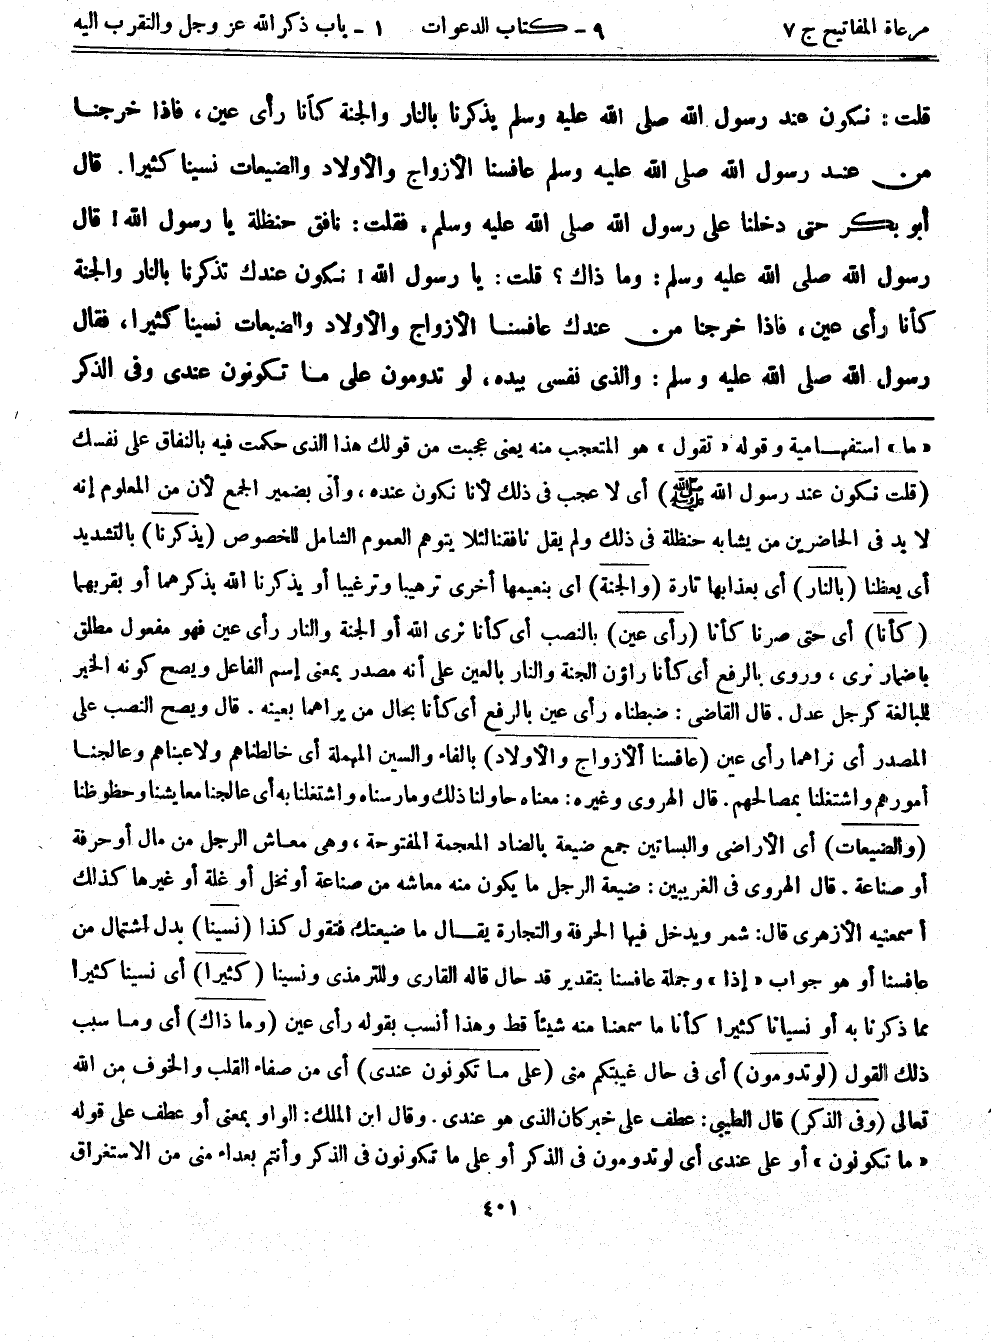 مرعاة المفاتيح ج ٧ ٩ - كتاب الدعوات ١ - باب ذكر الله عز وجل والتقرب اليه
قلت: نكون عند رسول الله صلى الله عليه وسلم يذكرنا بالنار والجنة كأنا رأى عين، فاذا خرجنا
من عند رسول الله صلى الله عليه وسلم عافسنا الأزواج والأولاد والضيعات نسينا كثيرا. قال
أبو بكر حتى دخلنا على رسول الله صلى الله عليه وسلم. فقلت: نافق حنظلة يا رسول الله! قال
رسول الله صلى الله عليه وسلم: وما ذاك؟ قلت: يا رسول الله! نكون عندك تذكرنا بالنار والجنة
كأنا رأى عين، فاذا خرجنا من عندك عافسنا الأزواج والأولاد والضيعات نسينا كثيرا، فقال
رسول الله صلى الله عليه وسلم: والذى نفسى بيده، لو تدومون على ما تكونون عندى وفى الذكر
«ما» استفهامية وقوله «تقول» هو المتعجب منه يعنى عجبت من قولك هذا الذى حكمت فيه بالنفاق على نفسك
(قلت نكون عند رسول الله ﷺ) أى لا عجب فى ذلك لأنا نكون عنده، وأتى بضمير الجمع لأن من المعلوم إنه
لا بد فى الحاضرين من يشابه حنظلة فى ذلك ولم يقل نافقنا لئلا يتوهم العموم الشامل للخصوص (يذكرنا) بالتشديد
أى يعظنا (بالنار) أى بعذابها تارة (والجنة) اى بنعيمها أخرى ترهيبا وترغيبا أو يذكرنا الله بذكرهما أو بقربهما
(كأنا) أى حتى صرنا كأنا (رأى عين) بالنصب أى كأنا نرى الله أو الجنة والنار رأى عين فهو مفعول مطلق
باضمار نرى، وروى بالرفع أى كأنا راؤن الجنة والنار بالعين على أنه مصدر بمعنى إسم الفاعل ويصح كونه الخبر
للمبالغة كرجل عدل. قال القاضى: ضبطناه رأى عين بالرفع أى كأنا بحال من يراهما بعينه. قال ويصح النصب على
المصدر أى نراهما رأى عين (عافسنا ألأزواج والأولاد) بالفاء والسين المهملة أى خالطناهم ولاعبناهم وعالجنا
أمورهم واشتغلنا بمصالحهم. قال الهروى وغيره: معناه حاولنا ذلك ومارسناه واشتغلنا به أى عالجنا معايشنا وحظوظنا
(والضيعات) أى الأراضى والبساتين جمع ضيعة بالضاد المعجمة المفتوحة، وهى معاش الرجل من مال أو حرفة
أو صناعة. قال الهروى فى الغريبين: ضيعة الرجل ما يكون منه معاشه من صناعة أو نخل أو غلة أو غيرها كذلك
أسمعنيه الأزهرى قال: شمر ويدخل فيها الحرفة والتجارة يقال ما ضيعتك فتقول كذا (نسينا) بدل اشتمال من
عافسنا أو هو جواب «إذا» وجملة عافسنا بتقدير قد حال قاله القارى وللترمذى ونسينا (كثيرا) أى نسينا كثيرا
مما ذكرنا به أو نسيانا كثيرا كأنا ما سمعنا منه شيئاً قط وهذا أنسب بقوله رأى عين (وما ذاك) أى وما سبب
ذلك القول (لو تدومون) أى فى حال غيبتكم منى (على ما تكونون عندى) أى من صفاء القلب والخوف من الله
تعالى (وفى الذكر) قال الطيبى: عطف على خبر كان الذى هو عندى. وقال ابن الملك: الواو بمعنى أو عطف على قوله
«ما تكونون» أو على عندى أى لو تدومون فى الذكر أو على ما تكونون فى الذكر وأنتم بعداء منى من الاستغراق
٤٠١